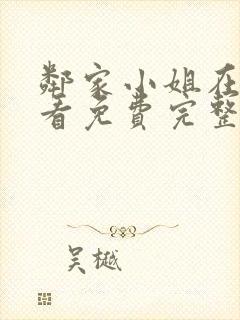 鄰家小姐在
看免費完整
吴樾